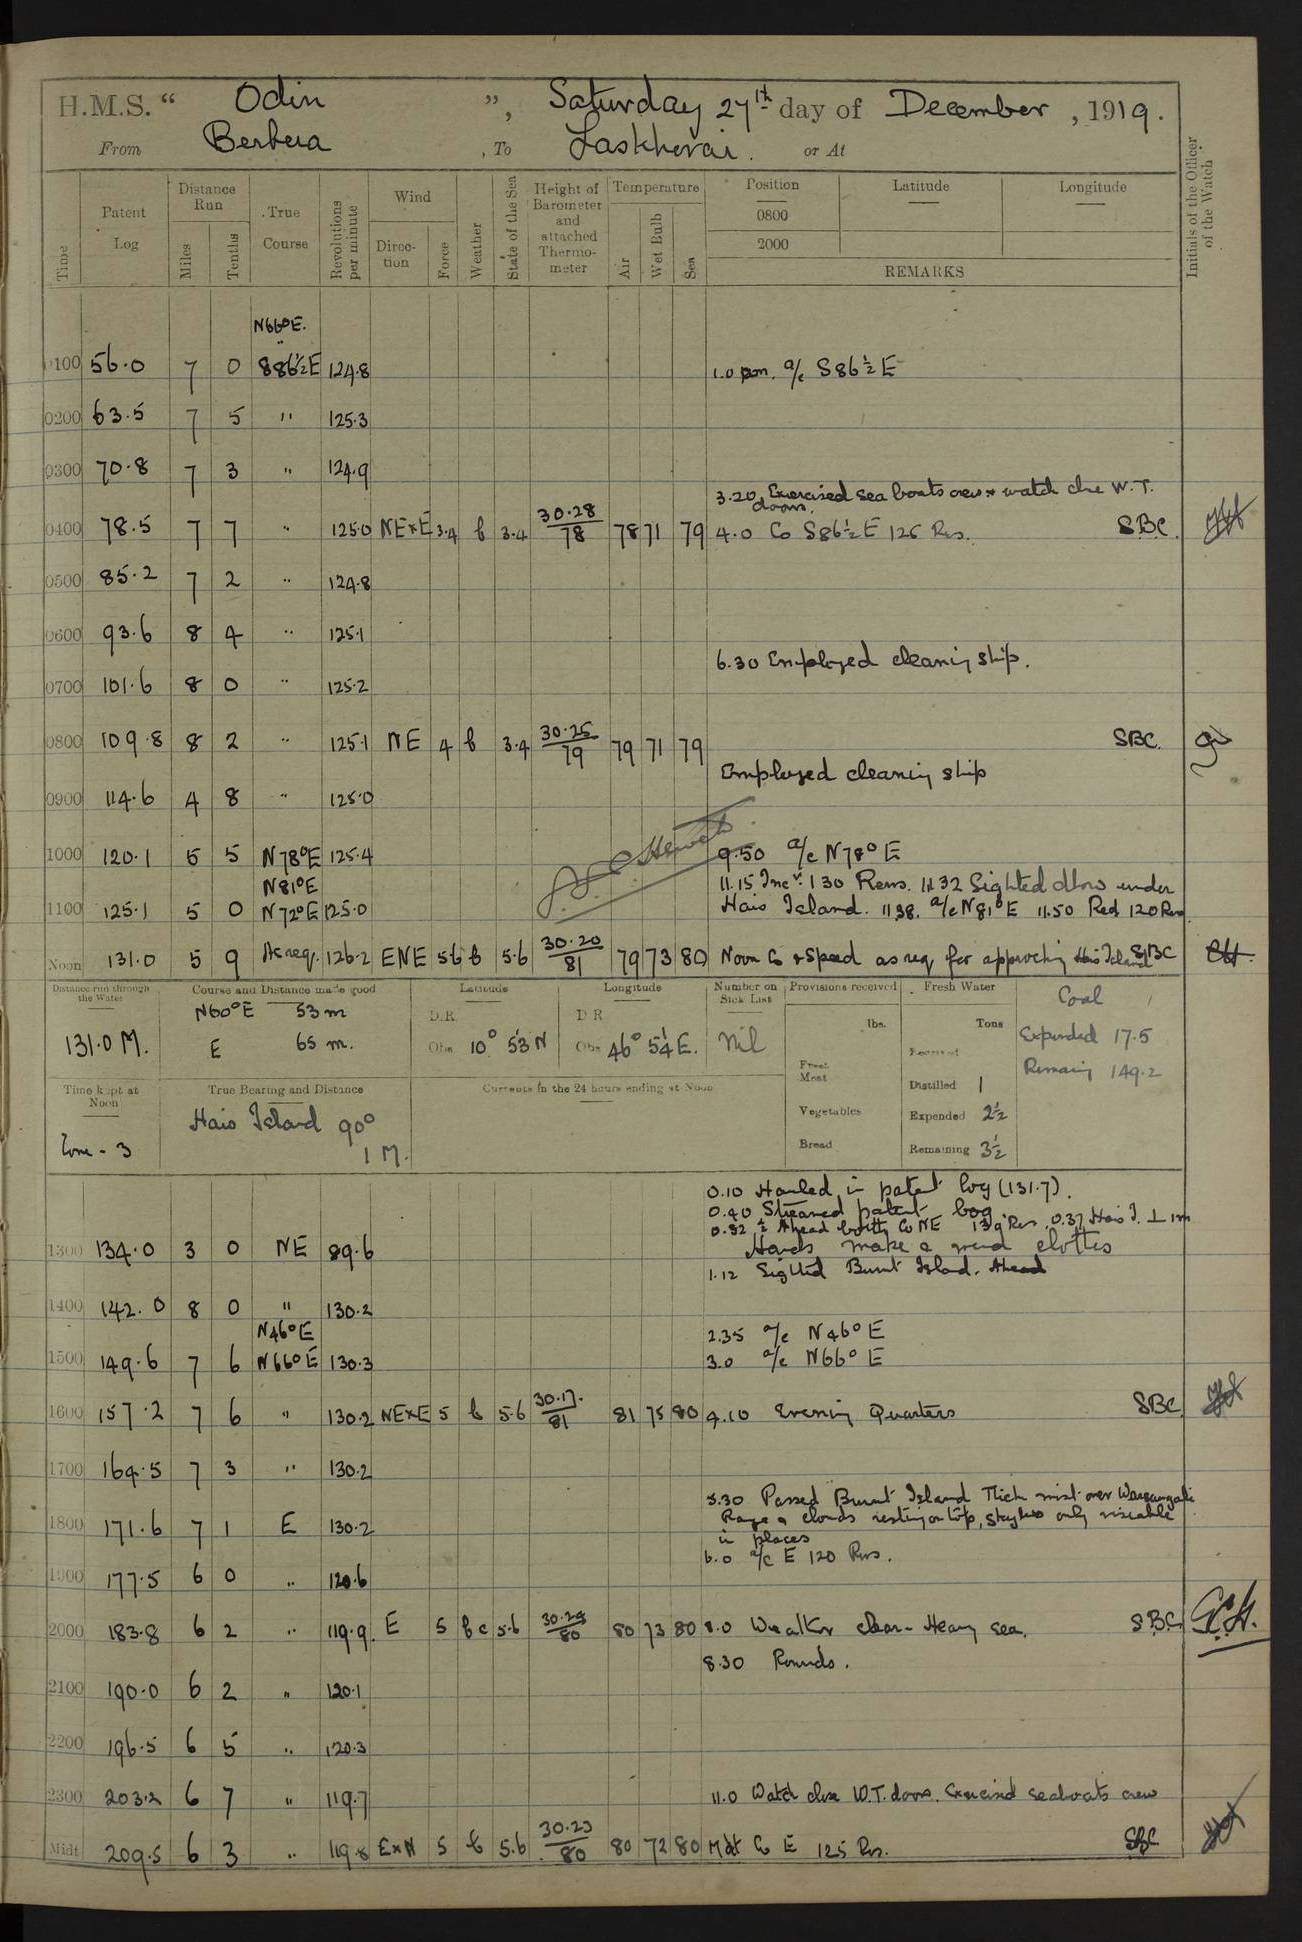 H.M.S. " Odin ", Saturday 27th day of December, 1919.
From Berbera, To Laskhorai. or At
Time Patent Log Distance Run Miles Tenths True Course Revolutions per minute Wind Direction Force Weather State of the Sea Height of Barometer and attached Thermometer Temperature Air Wet Bulb Sea Position 0800 2000 Latitude Longitude REMARKS Initials of the Officer of the Watch
N66°E.
0100 56.0 7 0 S86½E 124.8 1.0 a/c S86½E
0200 63.5 7 5 " 125.3
0300 70.8 7 3 " 124.9
3.20 Exercised sea boats crew & watch close W.T.
doors.
0400 78.5 7 7 " 125.0 NE×E 3.4 b 3.4 30.28/78 78 71 79 4.0 Co S86½E 125 Rev. SBC
0500 85.2 7 2 " 124.8
0600 93.6 8 4 " 125.1
6.30 Employed cleaning ship.
0700 101.6 8 0 " 125.2
0800 109.8 8 2 " 125.1 NE 4 b 3.4 30.25/79 79 71 79 SBC.
Employed cleaning ship
0900 114.6 4 8 " 125.0
1000 120.1 5 5 N78°E 125.4 9.50 a/c N78°E
N81°E 11.15 Incd. 130 Revs. 11.32 Sighted dhow under
1100 125.1 5 0 N72°E 125.0 Hais Island. 11.38. a/c N81°E 11.50 Red 120 Revs
Noon 131.0 5 9 As req. 126.2 ENE 5.6 b 5.6 30.20/81 79 73 80 Noon Co & Speed as req for approaching Hais Island SBC
Distance run through the Water 131.0 M.
Course and Distance made good
N60°E 53 m
E 65 m.
Latitude D.R. Obs 10° 53' N
Longitude D R Obs 46° 54' E.
Number on Sick List Nil
Provisions received lbs. Fresh Meat Vegetables Bread
Fresh Water Tons Received Distilled 1 Expended 2½ Remaining 3½
Coal
Expended 17.5
Remaing 149.2
Time kept at Noon Zone - 3
True Bearing and Distance
Hais Island 90°
1 M.
Currents in the 24 hours ending at Noon
0.10 Hauled in patent log (131.7).
0.40 Streamed patent log
0.32 ½ Ahead both Co NE 130 Rev. 0.37 Hais I. ⊥ 1m
1300 134.0 3 0 NE 89.6 Hands make & mend clothes
1.12 Sighted Burnt Island. Ahead
1400 142.0 8 0 " 130.2
N46°E 2.35 a/c N46°E
1500 149.6 7 6 N66°E 130.3 3.0 a/c N66°E
1600 157.2 7 6 " 130.2 NE×E 5 b 5.6 30.17/81 81 75 80 4.10 Evening Quarters SBC.
1700 164.5 7 3 " 130.2
5.30 Passed Burnt Island Thick mist over Warsangali
1800 171.6 7 1 E 130.2 Range & clouds resting on top, skyline only viseable
in places
6.0 a/c E 120 Revs.
1900 177.5 6 0 " 120.6
2000 183.8 6 2 " 119.9. E 5 bc 5.6 30.24/80 80 73 80 8.0 Weather clear - Heavy sea. SBC
8.30 Rounds.
2100 190.0 6 2 " 120.1
2200 196.5 6 5 " 120.3
2300 203.2 6 7 " 119.7 11.0 Watch close W.T. doors. Exercised seaboats crew
Midt 209.5 6 3 " 119.8 E×N 5 b 5.6 30.23/80 80 72 80 Mdt Co E 125 Rvs. SBC